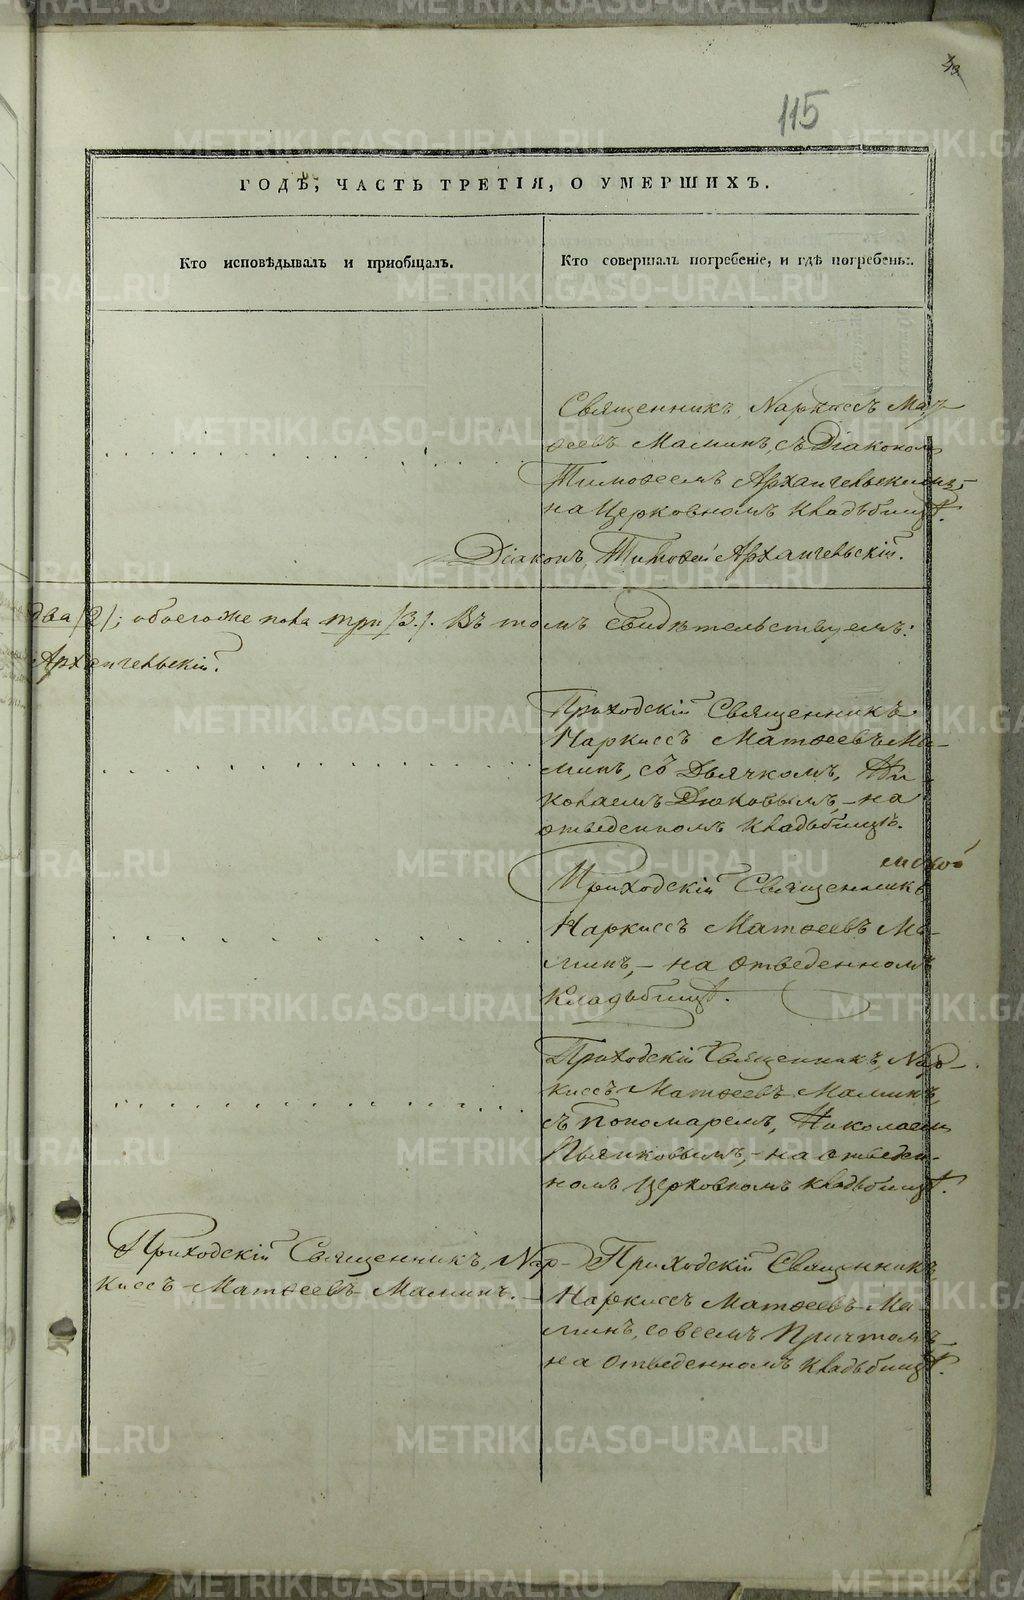 115
ГОДѢ, ЧАСТЬ ТРЕТІЯ, О УМЕРШИХЪ.
Кто исповѣдывалъ и пріобщалъ.
Кто совершалъ погребеніе, и гдѣ погребены.
Священникъ, Наркиссъ Мат-
ѳеевъ Маминъ, съ Діакономъ
Тимоѳеемъ Архангельскимъ,
на Церковномъ кладьбищѣ.
Діаконъ, Тимоѳей Архангельскій.
два /2/; обоегоже пола три /3/. Въ томъ свидѣтельствуемъ:
Архангельскій.
Приходскій Священникъ
Наркиссъ Матѳеевъ Ма-
минъ, съ Дьячкомъ, Ни-
колаемъ Дюковымъ, – на
отведенномъ кладьбищѣ.
Приходскій Священникъ
Наркиссъ Матѳеевъ Ма-
минъ, – на отведенномъ
Кладьбищѣ.
Приходскій Священникъ, Нар-
киссъ Матѳеевъ Маминъ,
съ Пономаремъ, Николаемъ
Пьянковымъ, – на отведен-
номъ Церковномъ кладьбищѣ.
Приходскій Священникъ, Нар-
киссъ Матѳеевъ Маминъ.
Приходскій Священникъ
Наркиссъ Матѳеевъ Ма-
минъ, со всемъ Причтомъ
на отведенномъ кладьбищѣ.
METRIKI.GASO-URAL.RU